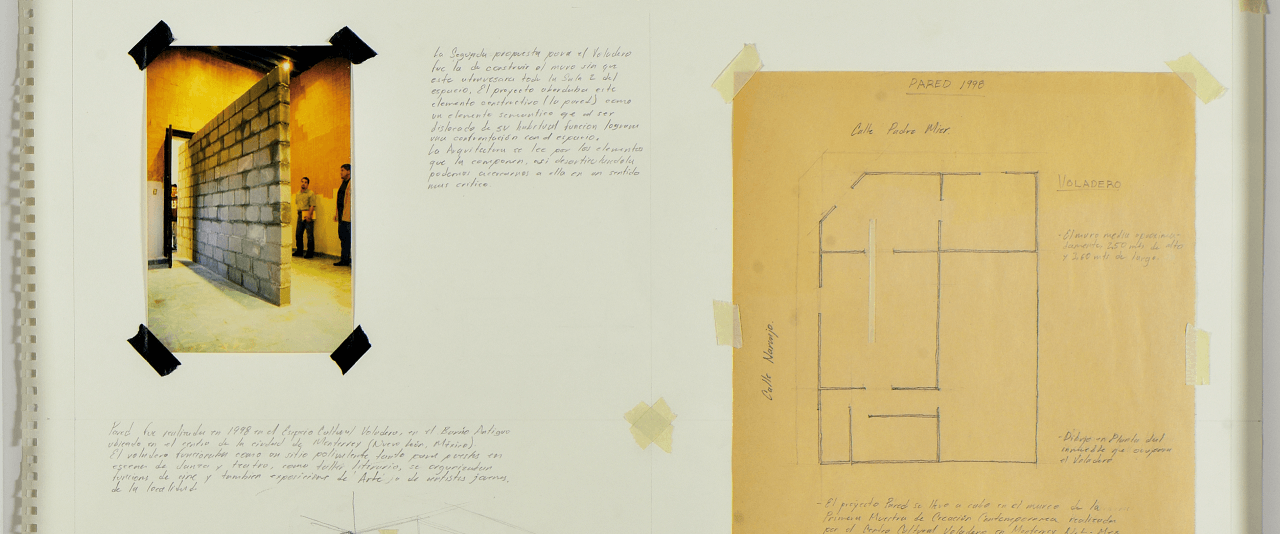 La Segunda propuesta para el Voladero
fue la de construir el muro sin que
este atravesara toda la Sala 2 del
espacio. El proyecto abordaba este
elemento constructivo (la pared) como
un elemento semantico que al ser
dislocado de su habitual funcion lograra
una confrontación con el espacio.
La Arquitectura se lee por los elementos
que la componen, asi desarticulandola
podemos acercarnos a ella en un sentido
mas critico.
Pared fue realizada en 1998 en el Espacio Cultural Voladero, en el Barrio Antiguo
ubicado en el centro de la ciudad de Monterrey (Nuevo León, México).
El voladero funcionaba como un sitio polivalente, tanto para puestas en
escena de danza y teatro, como taller literario, se organizaban
funciones de cine y tambien exposiciones de Arte de artistas jovenes
de la localidad.
PARED 1998
Calle Padre Mier.
VOLADERO
- El muro media aproxima-
damente 2.50 mts. de alto
y 2.60 mts. de largo.
Calle Naranjo.
- Dibujo en Planta del
inmueble que ocupara
el Voladero.
- El proyecto Pared se llevo a cabo en el marco de la
Primera Muestra de Creación Contemporanea realizada
por el Centro Cultural Voladero en Monterrey